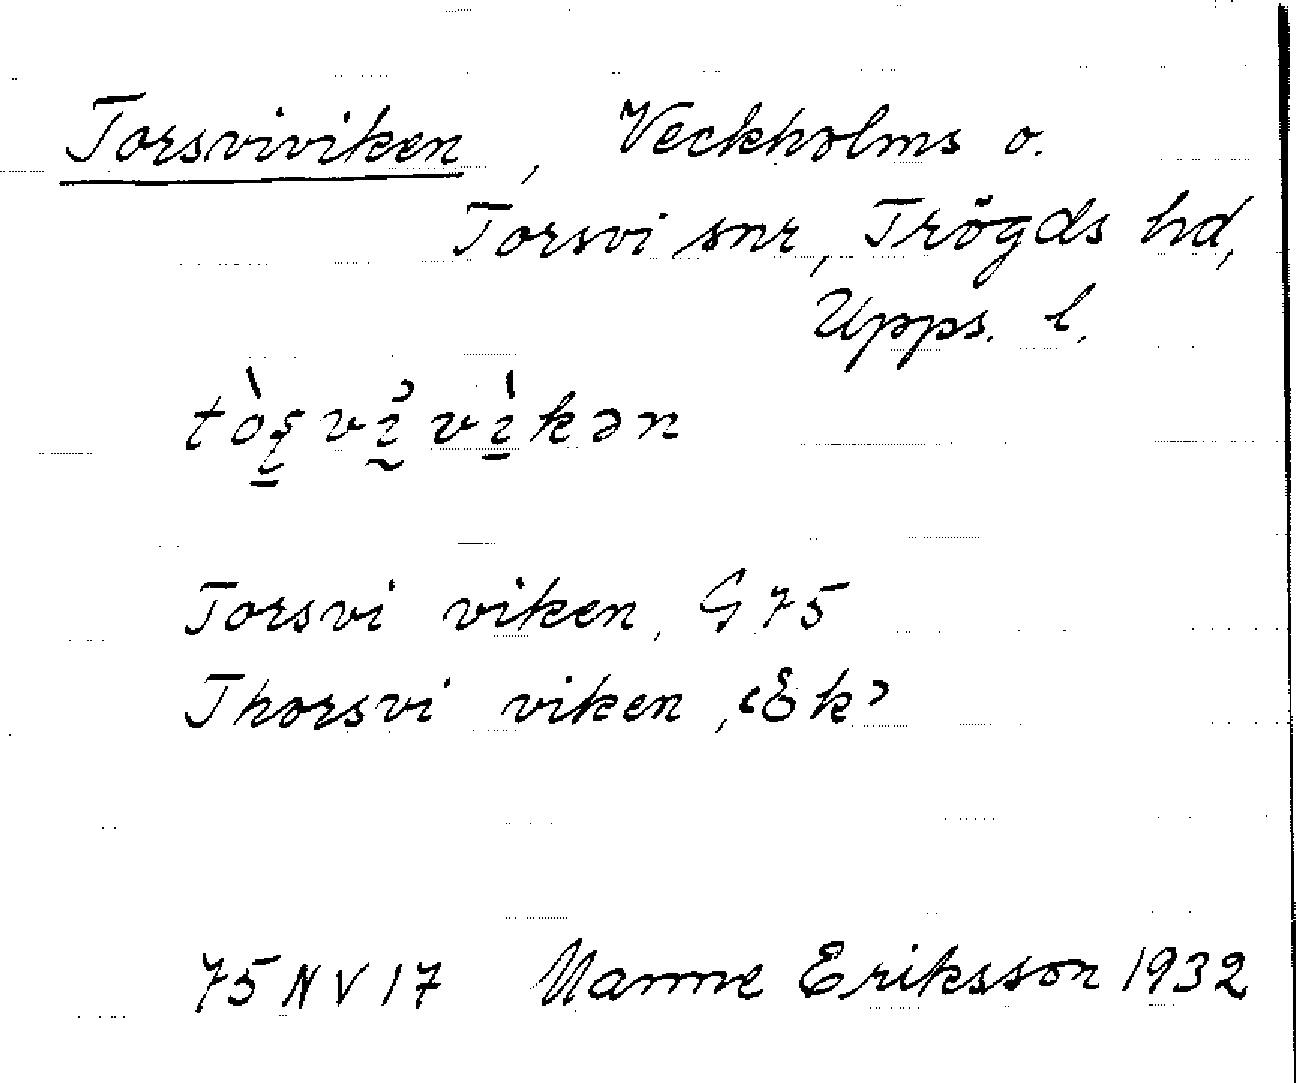 Torsviviken, Veckholms o.
Torsvi snr, Trögds hd,
Upps. l.
tòʂvi̇̀vìkən
Torsvi viken, G 75
Thorsvi viken, ‹Ek›
75 NV 17 Manne Eriksson 1932